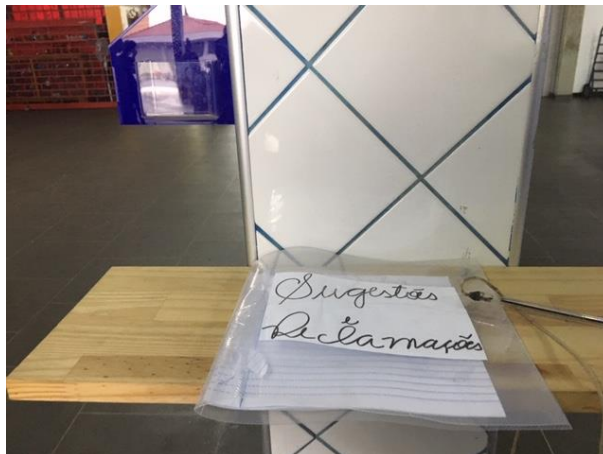 Sugestões
e
Reclamações